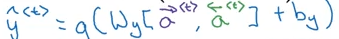 ŷ^{<t>} = g(W_y[→a^{<t>}, ←a^{<t>}] + b_y)